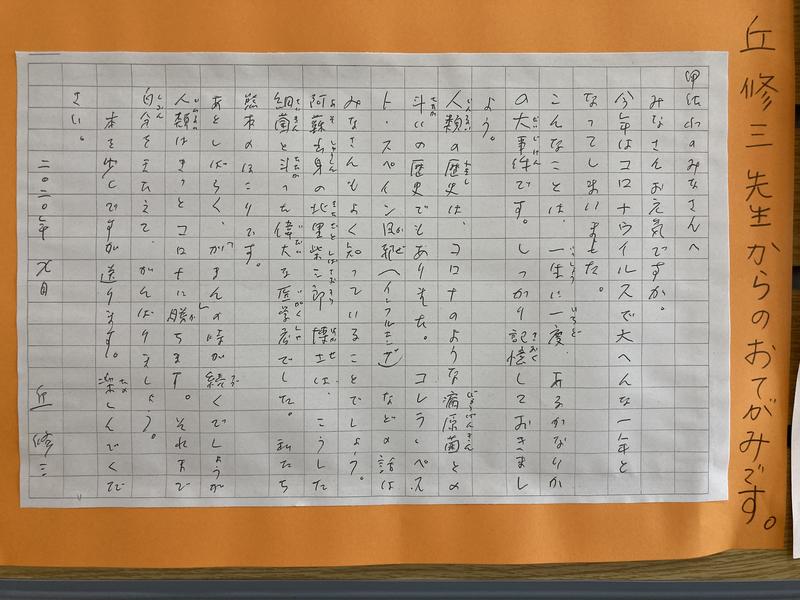 丘修三先生からのおてがみです。
甲佐小のみなさんへ
みなさんお元気ですか。
今年はコロナウイルスで大へんな一年と
なってしまいました。
こんなことは、一生に一度、あるかないか
の大事件です。しっかり記憶しておきまし
よう。
人類の歴史は、コロナのような病原菌との
斗いの歴史でもあります。コレラ・ペス
ト・スペイン風邪(インフルエンザ)などの話は
みなさんもよく知っていることでしょう。
阿蘇出身の北里柴三郎博士は、こうした
細菌と斗った偉大な医学者でした。私たち
熊本のほこりです。
あとしばらく、がまんの時が続くでしょうが
人類はきっとコロナに勝ちます。それまで
自分をきたえて、がんばりましょう。
本を少しですが送ります。楽しんでくだ
さい。
二〇二〇年 月 丘 修三